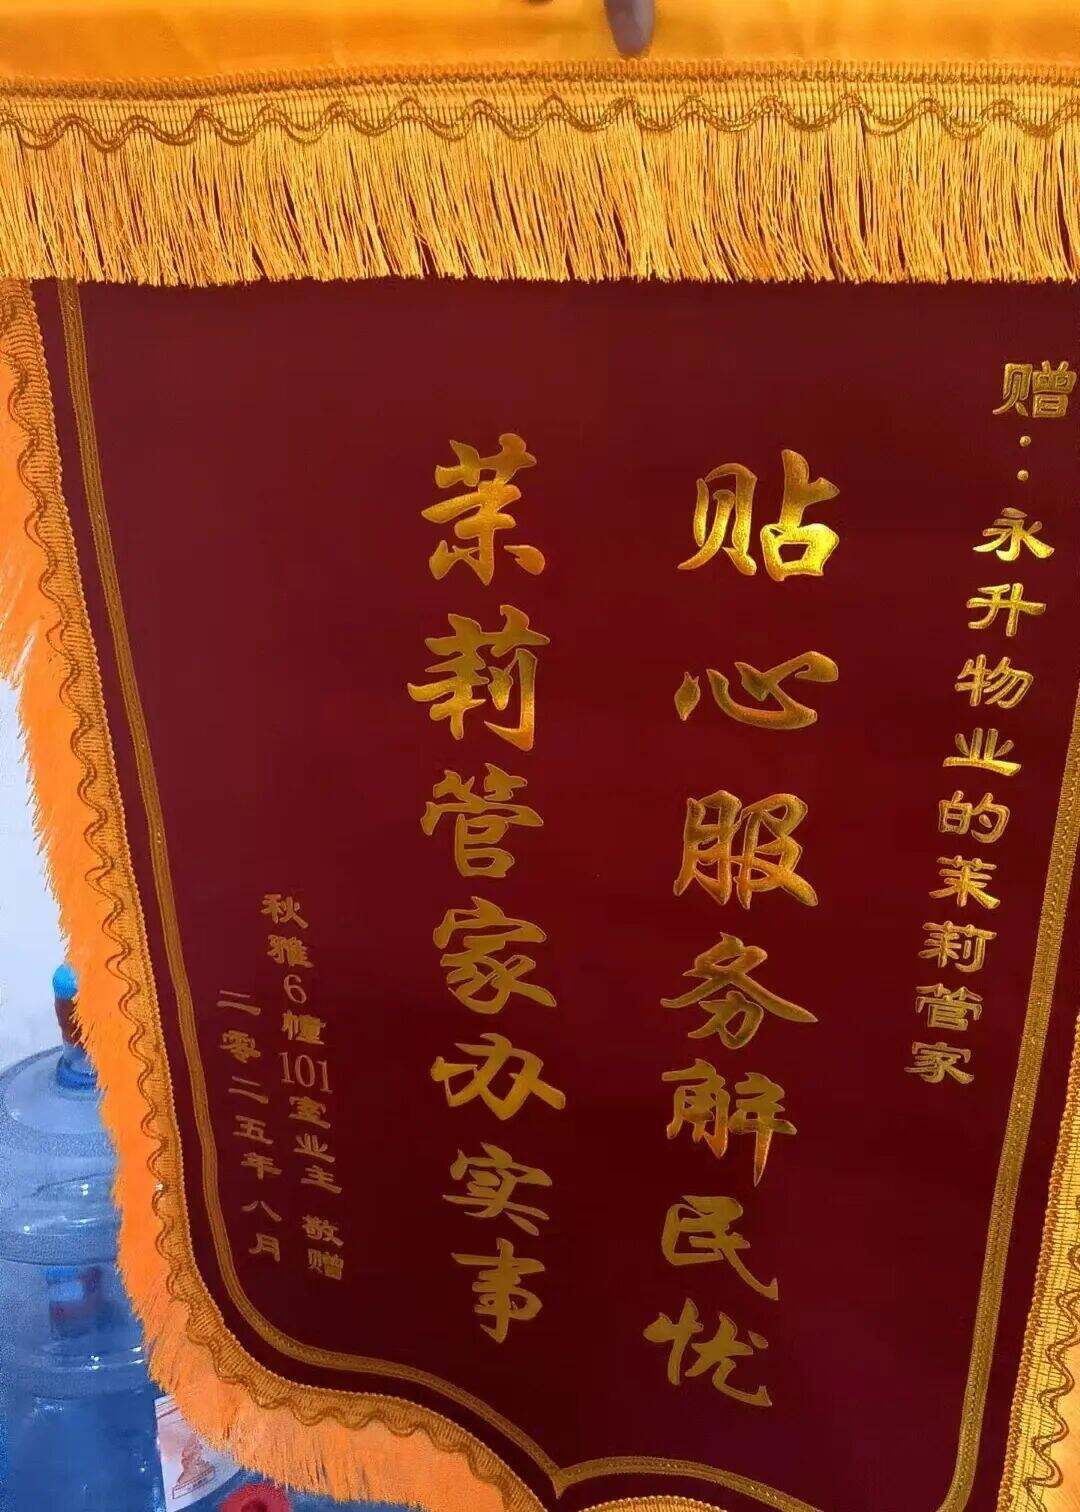 赠：永升物业的茉莉管家
贴心服务解民忧
茉莉管家办实事
秋雅6幢101室业主 敬赠
二零二五年八月